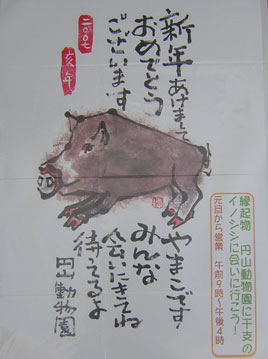 新年あけまして
おめでとう
ございます
二〇〇七
亥年
やまこです
みんな
会いにきてね
待ってるよ
円山動物園
縁起物 円山動物園に干支の
イノシシに会いに行こう!
元旦から営業 午前9時~午後4時